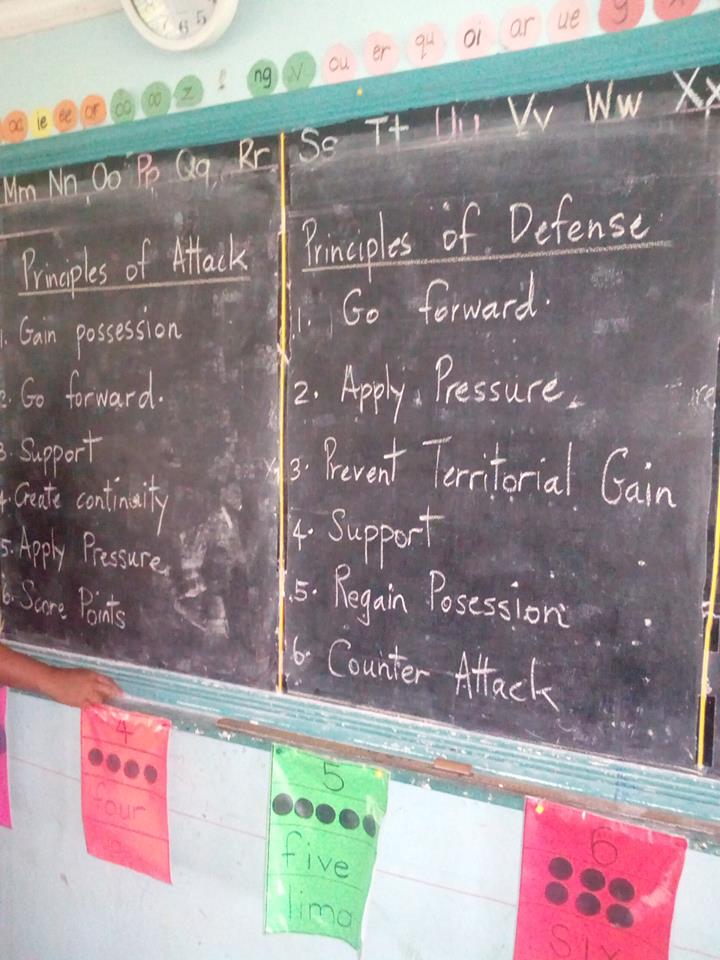 6 5
oa ie ee or z ng v ou er qu oi ar ue y x
Mm Nn Oo Pp Qq Rr Ss Tt Uu Vv Ww Xx
Principles of Attack
1. Gain possession
2. Go forward.
3. Support
4. Create continuity
5. Apply Pressure
6. Score Points
Principles of Defense
1. Go forward.
2. Apply Pressure
3. Prevent Territorial Gain
4. Support
5. Regain Posession
6. Counter Attack
4
four
5
five
lima
6
six